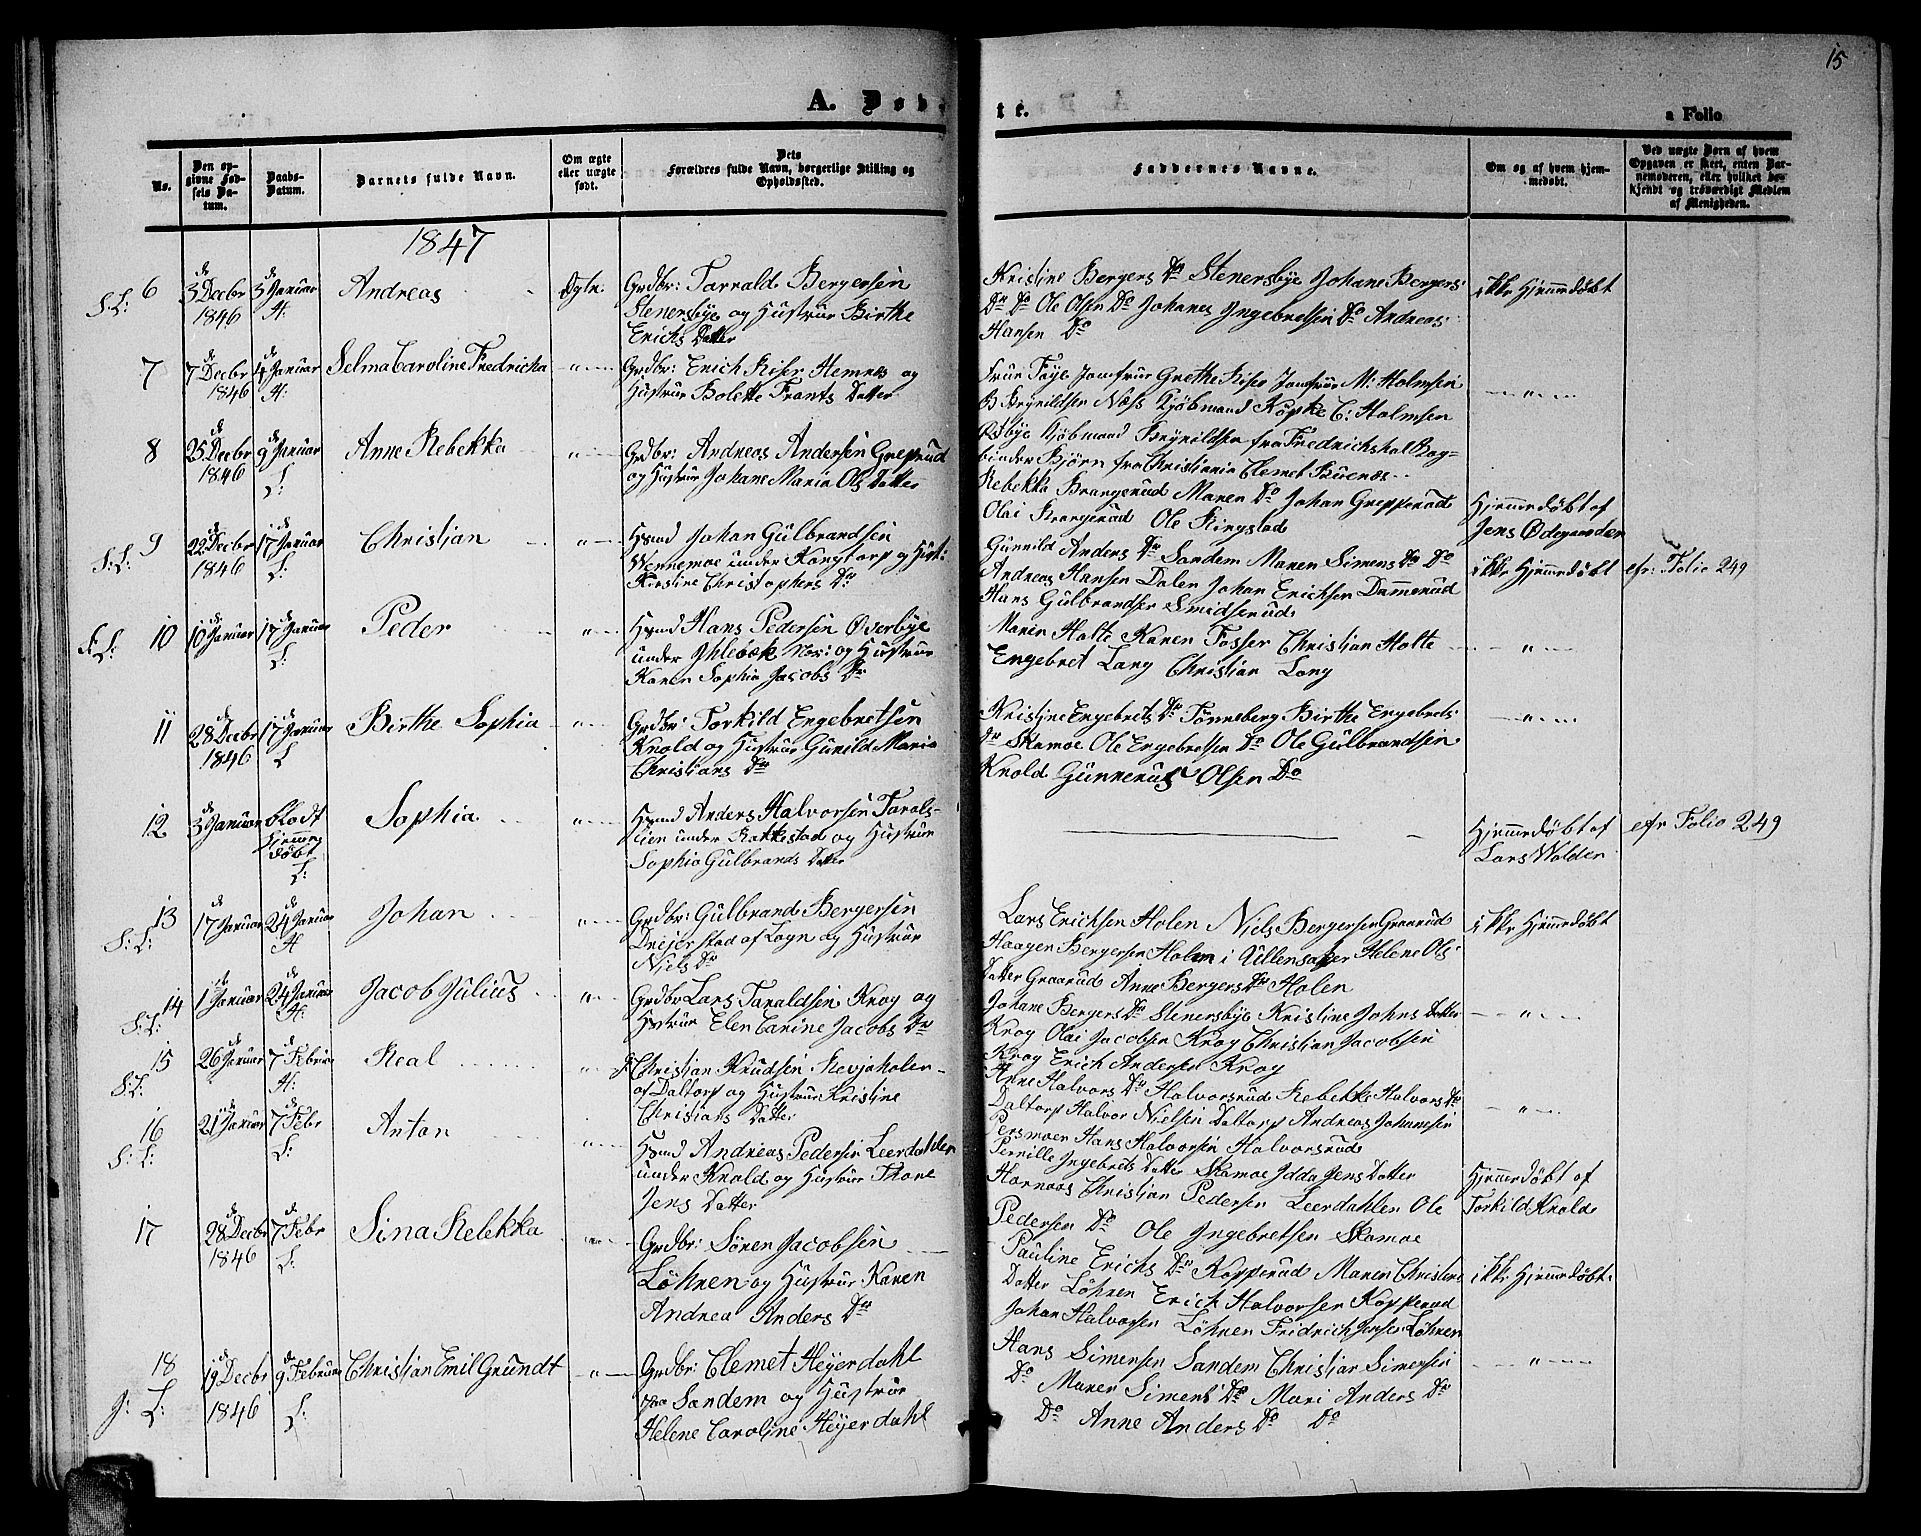 15
A. Døbte.
a Folio
No.
Den opgivne Fødsels Datum.
Daabs-Datum.
Barnets fulde Navn.
Om ægte eller uægte født.
Dets Forældres fulde Navn, borgerlige Stilling og Opholdssted.
Faddernes Navne.
Om og af hvem hjemmedøbt.
Ved uægte Børn af hvem Opgaven er skeet, enten Barnemoderen, eller hvilket bekjendt og troværdigt Medlem af Menigheden.
1847
6
3 de Decbr
1846
3 de Januar
H:
Andreas
Ægte.
Grdbr: Tarrald Bergersen
Stenersbye og Hustrue Birthe
Erichs Datter
Kristine Bergers Dr Stenersbye Johane Bergers
Dr Do Ole Olsen Do Johanes Ingebretsen Do Andreas
Hansen Do
ikke Hjemmedøbt
7
7 de Decbr
1846
4 de Januar
H:
Selma Caroline Fredricka
— " —
Grdbr: Erich Riser Hemnes og
Hustrue Bolette Frants Datter
Frue Føye Jomfrue Grethe Riser Jomfrue M: Holmsen
B Brynildsen Næss Kjøbmand Køpke C: Holmsen
Østbye Kjøbmand Brynildsen fra Fredrichshal Bog-
binder Bjørn fra Christiania Clemet Buenæs
— " —
8
25 de Decbr
1846
9 de Januar
L:
Anne Rebekka
— " —
Grdbr: Andreas Andersen Greprud
og Hustrue Johane Maria Ols Datter
Rebekka Krangerud Maren Do Johan Grepperud
Olai Krangerud Ole Ringstad
Hjemmedøbt af
Jens Ødegaarden
S: L:
9
22 de Decbr
1846
17 de Januar
L:
Christian
— " —
Hsmd Johan Gulbrandsen
Wennemoe under Kongtorp og Hust:
Kirstine Christophers Dr
Gunnild Anders Dr Sandem Maren Simens Dr Do
Andreas Hansen Dalen Johan Erichsen Dammerud
Hans Gulbrandsen Smidsrud
ikke Hjemmedøbt
cfr: Folio 249
10
10 de Januar
17 de Januar
L:
Peder
— " —
Hsmd Hans Pedersen Overbye
under Ihlebæk og Hustrue
Karen Sophia Jacobs Dr
Maren Holte Karen Fosser Christian Holte
Engebret Lang Christian Lang
— " —
11
28 de Decbr
1846
17 de Januar
L
Birthe Sophia
— " —
Grdbr: Torkild Engebretsen
Knold og Hustrue Gunild Maria
Christians Dr
Kristine Engebrets Dr Tønneberg Birthe Engebrets
Dr Skamoe Ole Engebretsen Do Ole Gulbrandsen
Knold Gunnerus Olsen Do
— " —
12
3 de Januar
blodt
Hjemme
døbt
L:
Sophia
— " —
Hsmd Anders Halvorsen Tarals-
lien under Rakkestad og Hustrue
Sophia Gulbrands Datter
Hjemmedøbt af
Lars Wolden
cfr Folio 249
S: L:
13
17 de Januar
24 de Januar
H
Johan
— " —
Grdbr: Gulbrand Bergersen
Drejerstad af Sogn og Hustrue
Niels Dr
Lars Erichsen Holen Niels Bergersen Graarud
Haagen Bergersen Holm i Ullensaker Helene Ols
Datter Graarud Anne Bergers Dr Holen
ikke Hjemmedøbt
S: L:
14
1 de Januar
24 de Januar
H:
Jacob Julius
— " —
Grdbr Lars Taraldsen Krog og
Hustrue Elen Carine Jacobs Dr
Johane Bergers Dr Stenersbye Kristine Johns Datter
Krog Olai Jacobsen Krog Christian Jacobsen
Krog Erich Andersen Krog
— " —
S: L:
15
26 de Januar
7 de Februar
H:
Real
— " —
Christian Knudsen Revjeholen
af Daltorp og Hustrue Kristine
Christians Datter
Anne Halvors Dr Halvorsrud Rebekke Halvors Dr
Daltorp Halvor Nielsen Daltorp Andreas Johannesen
Persmoen Hans Halvorsen Halvorsrud
— " —
S: L:
16
21 de Januar
7 de Febr
L:
Anton
— " —
Hsmd Andreas Pedersen Leerdahlen
under Knold og Hustrue Thore
Jens Datter
Pernille Ingebrets Datter Skamoe Idda Jens Datter
Hornaas Christian Pedersen Leerdahlen Ole
Pedersen Do Ole Ingebretsen Skamoe
Hjemmedøbt af
Torkild Knold
17
28 de Decbr
1846
7 de Febr
L:
Sina Rebekka
— " —
Grdbr: Søren Jacobsen
Løhren og Hustrue Karen
Andrea Anders Dr
Pauline Erichs Dr Kopperud Maren Christens
Datter Løhren Erich Halvorsen Kopperud
Johan Halvorsen Løhren Fridrich Jensen Løhren
ikke Hjemmedøbt
18
19 de Decbr
1846
9 de Februar
L:
Christian Emil Grundt
— " —
Grdbr: Clemet Heyerdahl
paa Sandem og Hustrue
Helene Caroline Heyerdahl
Hans Simensen Sandem Christian Simensen
Do Maren Simens Do Mari Anders Dr
Do Anne Anders Do Do
— " —